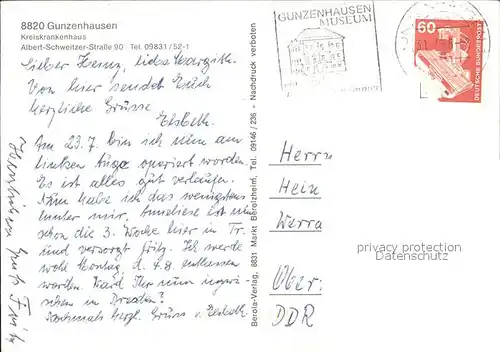 8820 Gunzenhausen
Kreiskrankenhaus
Albert-Schweitzer-Straße 90 Tel. 09831/52-1
Lieber Heinz, liebe Margit.
Von hier sendet Euch
herzliche Grüsse
Elsbeth.
Am 23.7. bin ich nun am
linken Auge operiert worden.
Es ist alles gut verlaufen.
Nun habe ich das wenigstens
hinter mir. Anneliese ist nun
schon die 3. Woche hier in Tr.
und versorgt Fritz. Ich werde
wohl Montag, d. 4.8. entlassen
werden. Ward Ihr nun inzwi-
schen in Dresden?
Nochmals herzl. Gruss v. Elsbeth
Gruß Fritz
Berola-Verlag, 8831 Markt Berolzheim, Tel. 09146/236 - Nachdruck verboten
GUNZENHAUSEN
MUSEUM
60
DEUTSCHE BUNDESPOST
Herrn
Hein
Werra
Über:
DDR
privacy protection